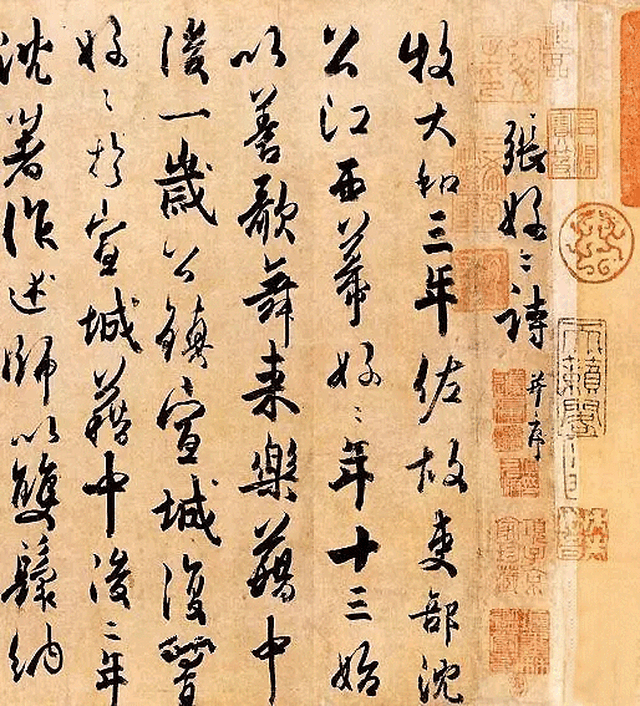 張好〻詩并序
牧大和三年佐故吏部沈
公江西幕好〻年十三始
以善歌舞来樂籍中
後一歲公鎮宣城復置
好〻於宣城籍中後二年
沈著作述師以雙鬟納
天籟閣
項子京家珍藏